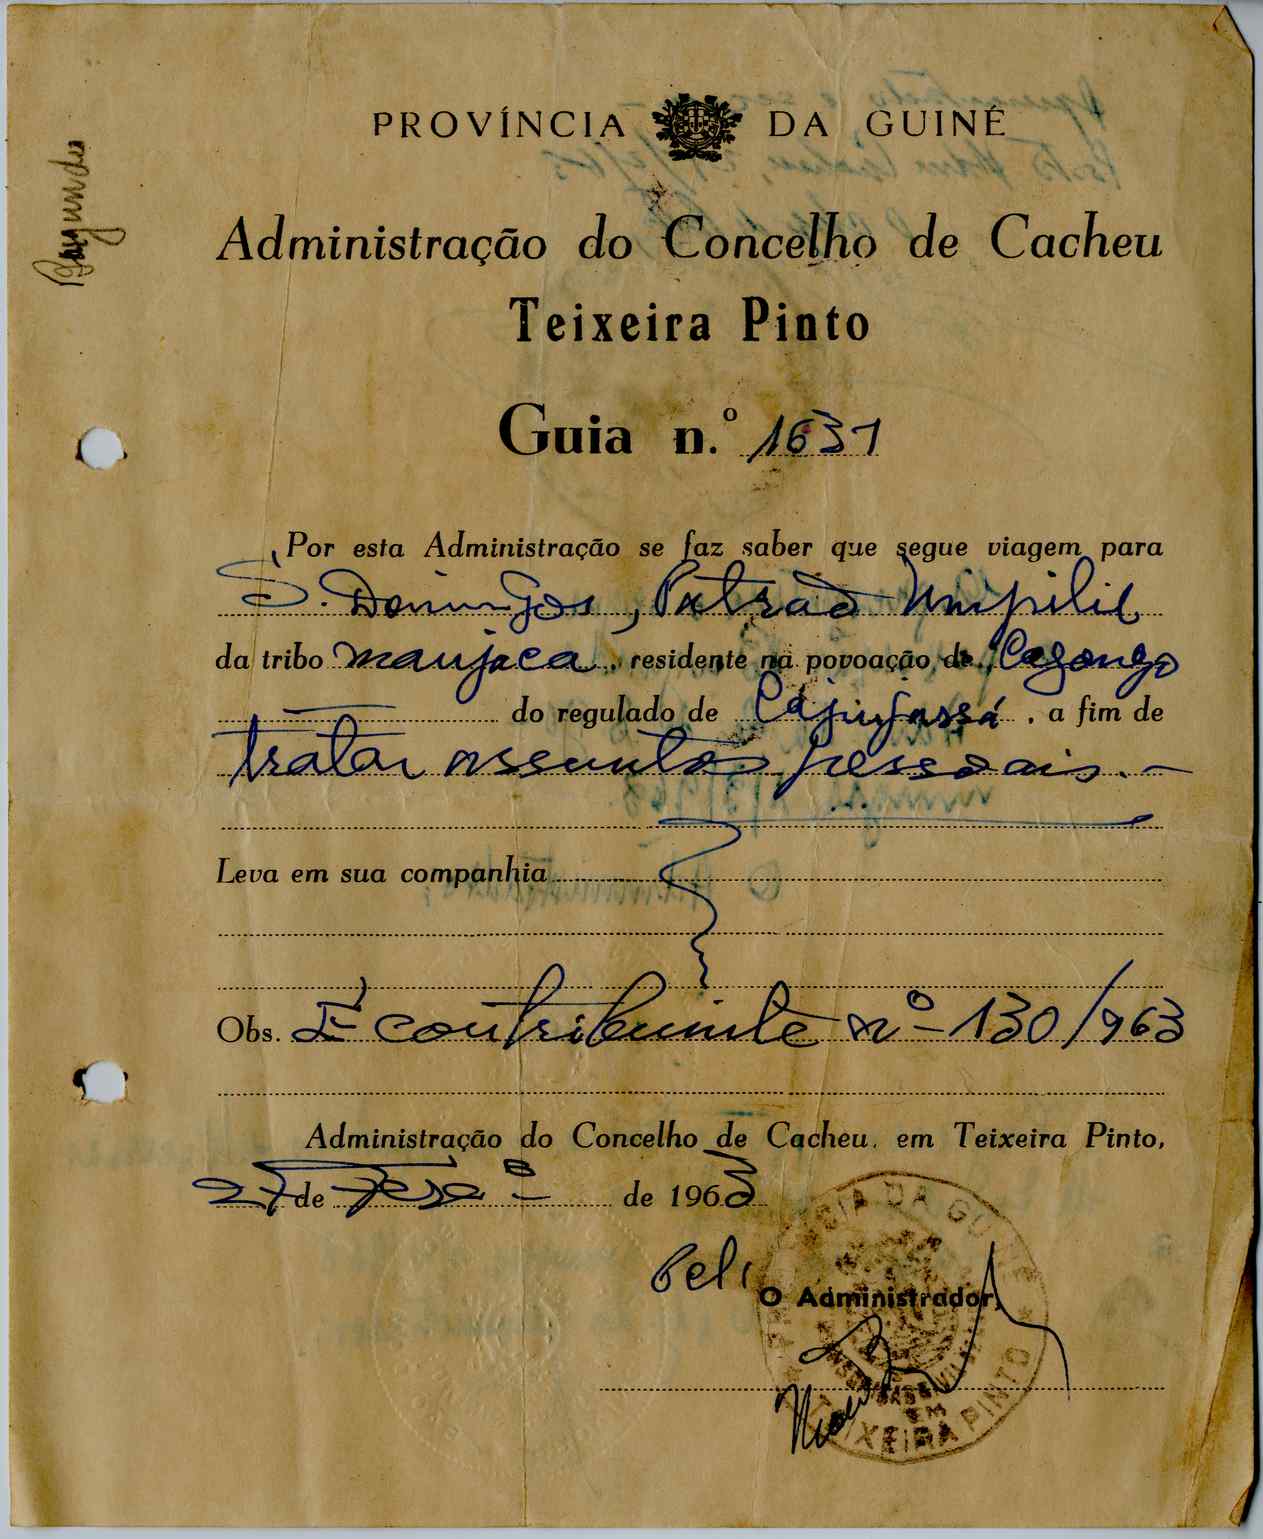 PROVÍNCIA DA GUINÉ
Administração do Concelho de Cacheu
Teixeira Pinto
Guia n.º 1631
Por esta Administração se faz saber que segue viagem para
S. Domingos, Patrão Umpilil
da tribo manjaca, residente na povoação de Cagongo
do regulado de Cajinjassá, a fim de
tratar assuntos pessoais.—
Leva em sua companhia
Obs. É contribuinte nº-130/963
Administração do Concelho de Cacheu, em Teixeira Pinto,
27 de de 1963
Pel'
O Administrador,
PROVÍNCIA DA GUINÉ
EM
TEIXEIRA PINTO